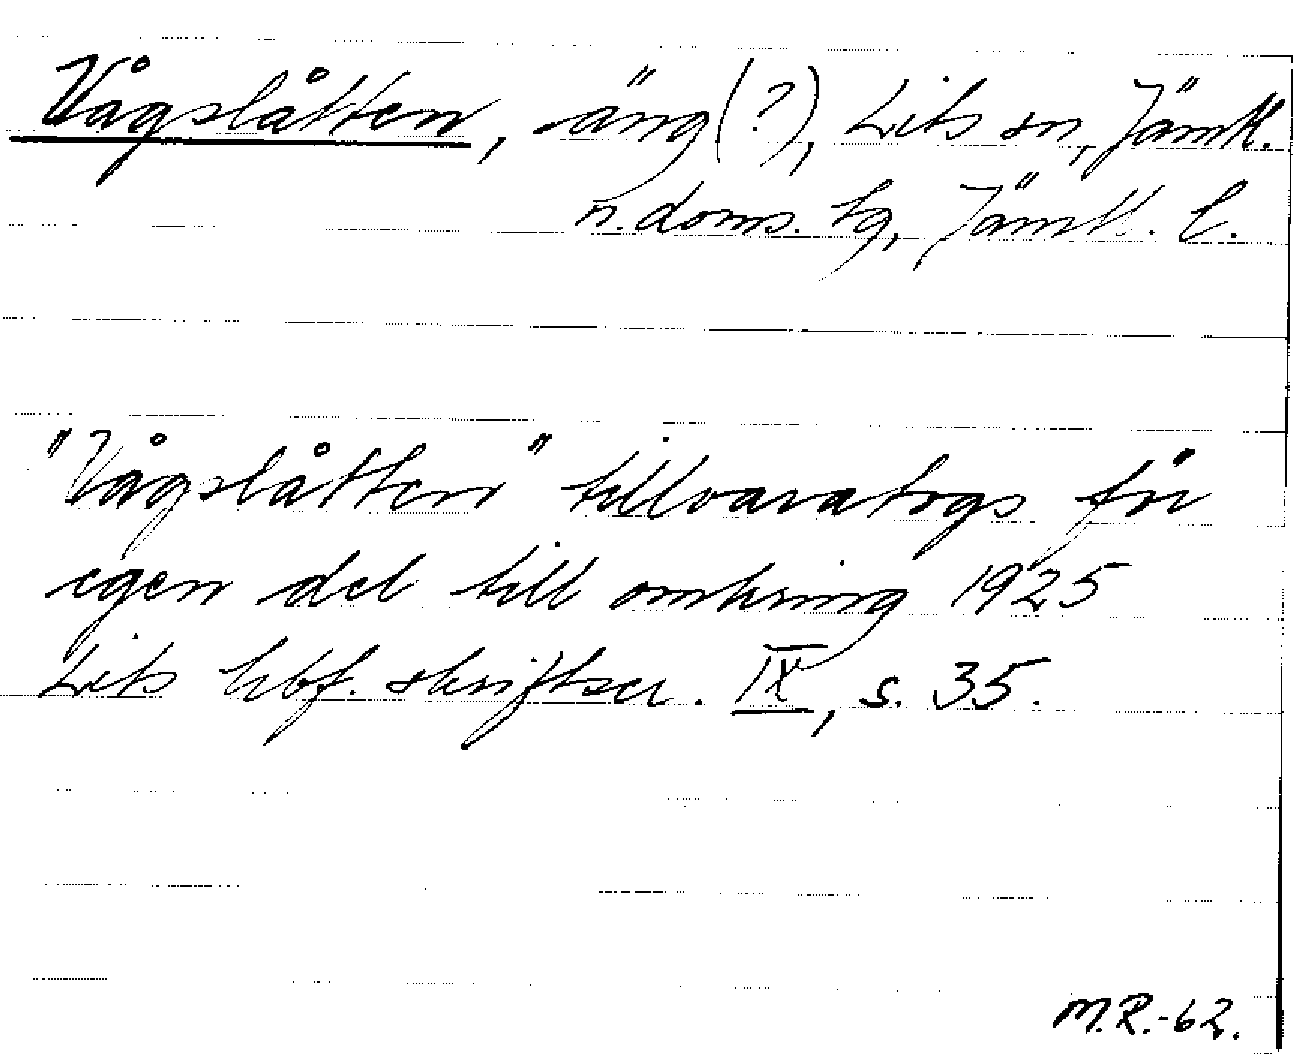 Vågslåtten, äng (?), Lits sn, Jämtl.
n. doms. hg, Jämtl. l.
"Vågslåtten" tillvaratogs för
egen del till omkring 1925
Lits hbf. skriftser. IX, s. 35.
M.R.-62.